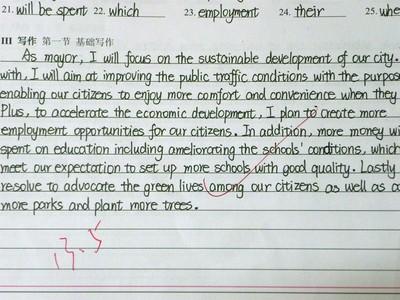 21. will be spent 22. which 23. employment 24. their 25.
III 写作 第一节 基础写作
As mayor, I will focus on the sustainable development of our city.
with, I will aim at improving the public traffic conditions with the purpos
enabling our citizens to enjoy more comfort and convenience when they
Plus, to accelerate the economic development, I plan to create more
employment opportunities for our citizens. In addition, more money wi
spent on education including ameliorating the schools' conditions, which
meet our expectation to set up more schools with good quality. Lastly
resolve to advocate the green lives among our citizens as well as
more parks and plant more trees.
13.5